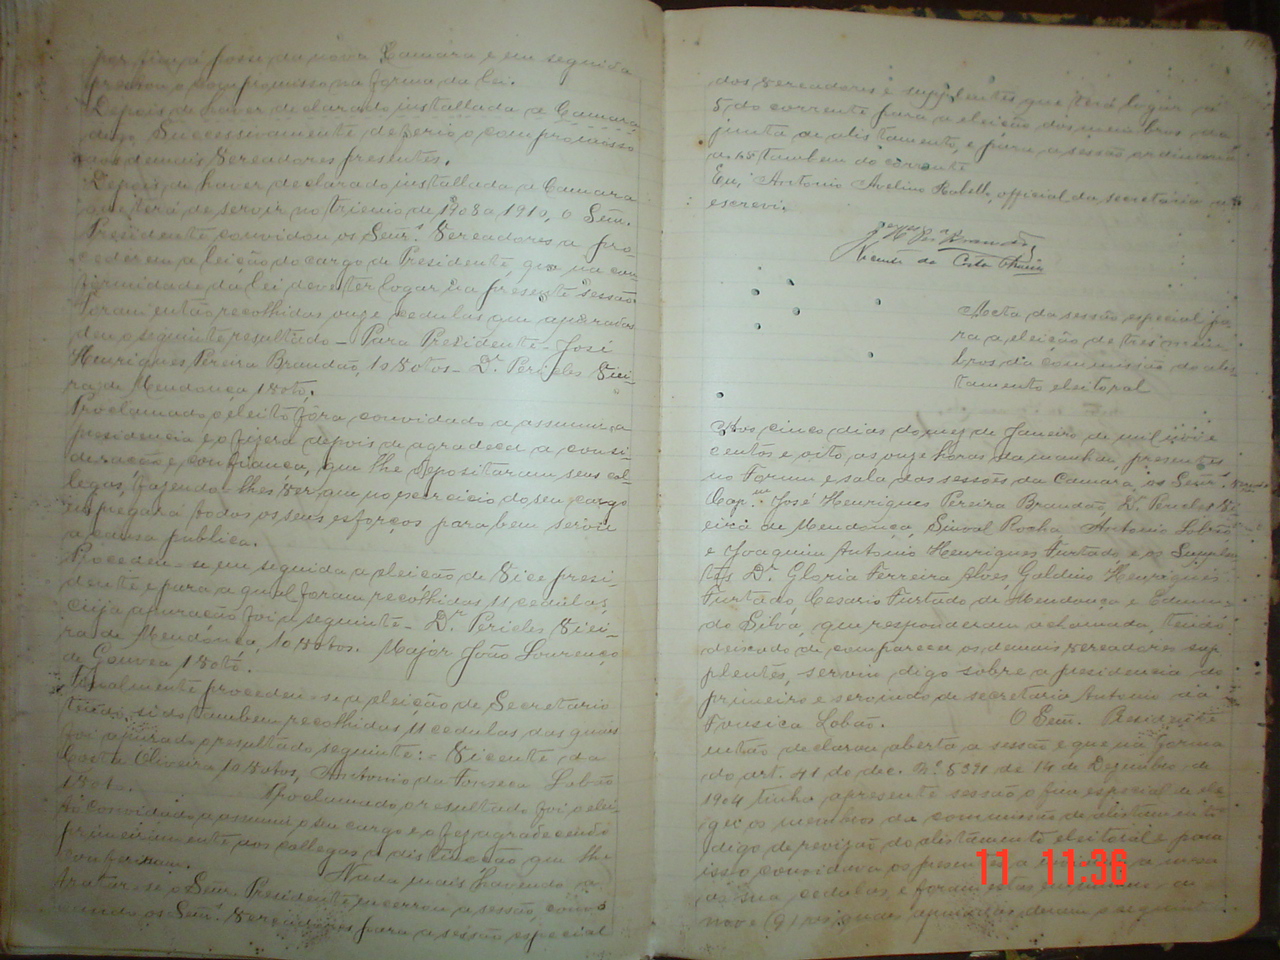 por fim, á posse da nova Camara e em seguida
prestou o compromisso na forma da lei.
Depois de haver declarado installada a Camara,
digo Successivamente deferio o compromisso
aos demais Vereadores presentes.
Depois de haver declarado installada a Camara
que terá de servir no trienio de 1908 a 1910, o Senr.
Presidente convidou os Senrs. Vereadores a pro-
cederem a eleição do cargo de Presidente, que na con-
formidade da lei deve ter logar na presente sessão.
Foram então recolhidas onze cedulas que apuradas
deu o seguinte resultado - Para Presidente - José
Henriques Pereira Brandão, 10 Votos - Dr. Pericles Viei-
ra de Mendonça, 1 Voto.
Proclamado o eleito fôra convidado a assumir a
presidencia e o fizera depois de agradecer a consi-
deração e confiança, que lhe depositaram seus col-
legas, fazendo-lhes ver, que no exercicio do seu cargo
empregará todos os seus esforços para bem servir
a causa publica.
Procedeu-se em seguida a eleição de Vice presi-
dente e para a qual foram recolhidas 11 cedulas,
cuja apuração foi a seguinte - Dr. Pericles Viei-
ra de Mendonça, 10 Votos. Major João Lourenço
de Gouvea 1 Voto.
Finalmente procedeu-se a eleição de Secretario
tendo sido tambem recolhidas 11 cedulas das quaes
foi apurado o resultado seguinte: - Vicente da
Costa Oliveira 10 Votos, Antonio da Fonseca Lobão
1 Voto. Proclamado o resultado foi o elei-
to convidado a assumir o seu cargo e o fez agradecendo
primeiramente aos collegas a distincção que lhe
conferiram. Nada mais havendo a
tratar-se o Senr. Presidente encerrou a sessão, convo-
cando os Senrs. Vereadores para a sessão especial
dos Vereadores e supplentes que terá logar a
5 do corrente para a eleição dos membros da
junta de alistamento, e para a sessão ordinaria
a 15 tambem do corrente.
Eu, Antonio Avelino, official da secretaria, a
escrevi.
Vicente da Costa
Acta da sessão especial pa-
ra a eleição de tres mem-
bros da commissão do alis-
tamento eleitoral
Aos cinco dias do mez de Janeiro de mil nove
centos e oito, as onze horas da manhã, presentes
no Forum e sala das sessões da Camara, os Senrs.
Capm. José Henriques Pereira Brandão, Dr. Pericles Vi-
eira de Mendonça, Sinval Rocha Antonio Lobão
e Joaquim Antonio Henriques Furtado e os Supplen-
tes Dr. Gloria Ferreira Alves, Galdino Henriques
Furtado, Cesario Furtado de Mendonça e Edmun-
do Silva, que responderam a chamada, tendo
deixado de comparecer os demais vereadores e sup
plentes, servin digo sobre a presidencia do
primeiro e servindo de secretario Antonio da
Fonseca Lobão. O Senr. Presidente
então declarou aberta a sessão e que na forma
do art. 41 do dec. Nº 5391 de 14 de Dezembro de
1904 tinha a presente sessão o fim especial de ele-
ger os membros da commissão de alistamento
digo de revisão do alistamento eleitoral e para
isso convidava os presentes a
de sua cedulas, e foram
nove (9) as quaes apuradas deram o seguinte
11 11:36